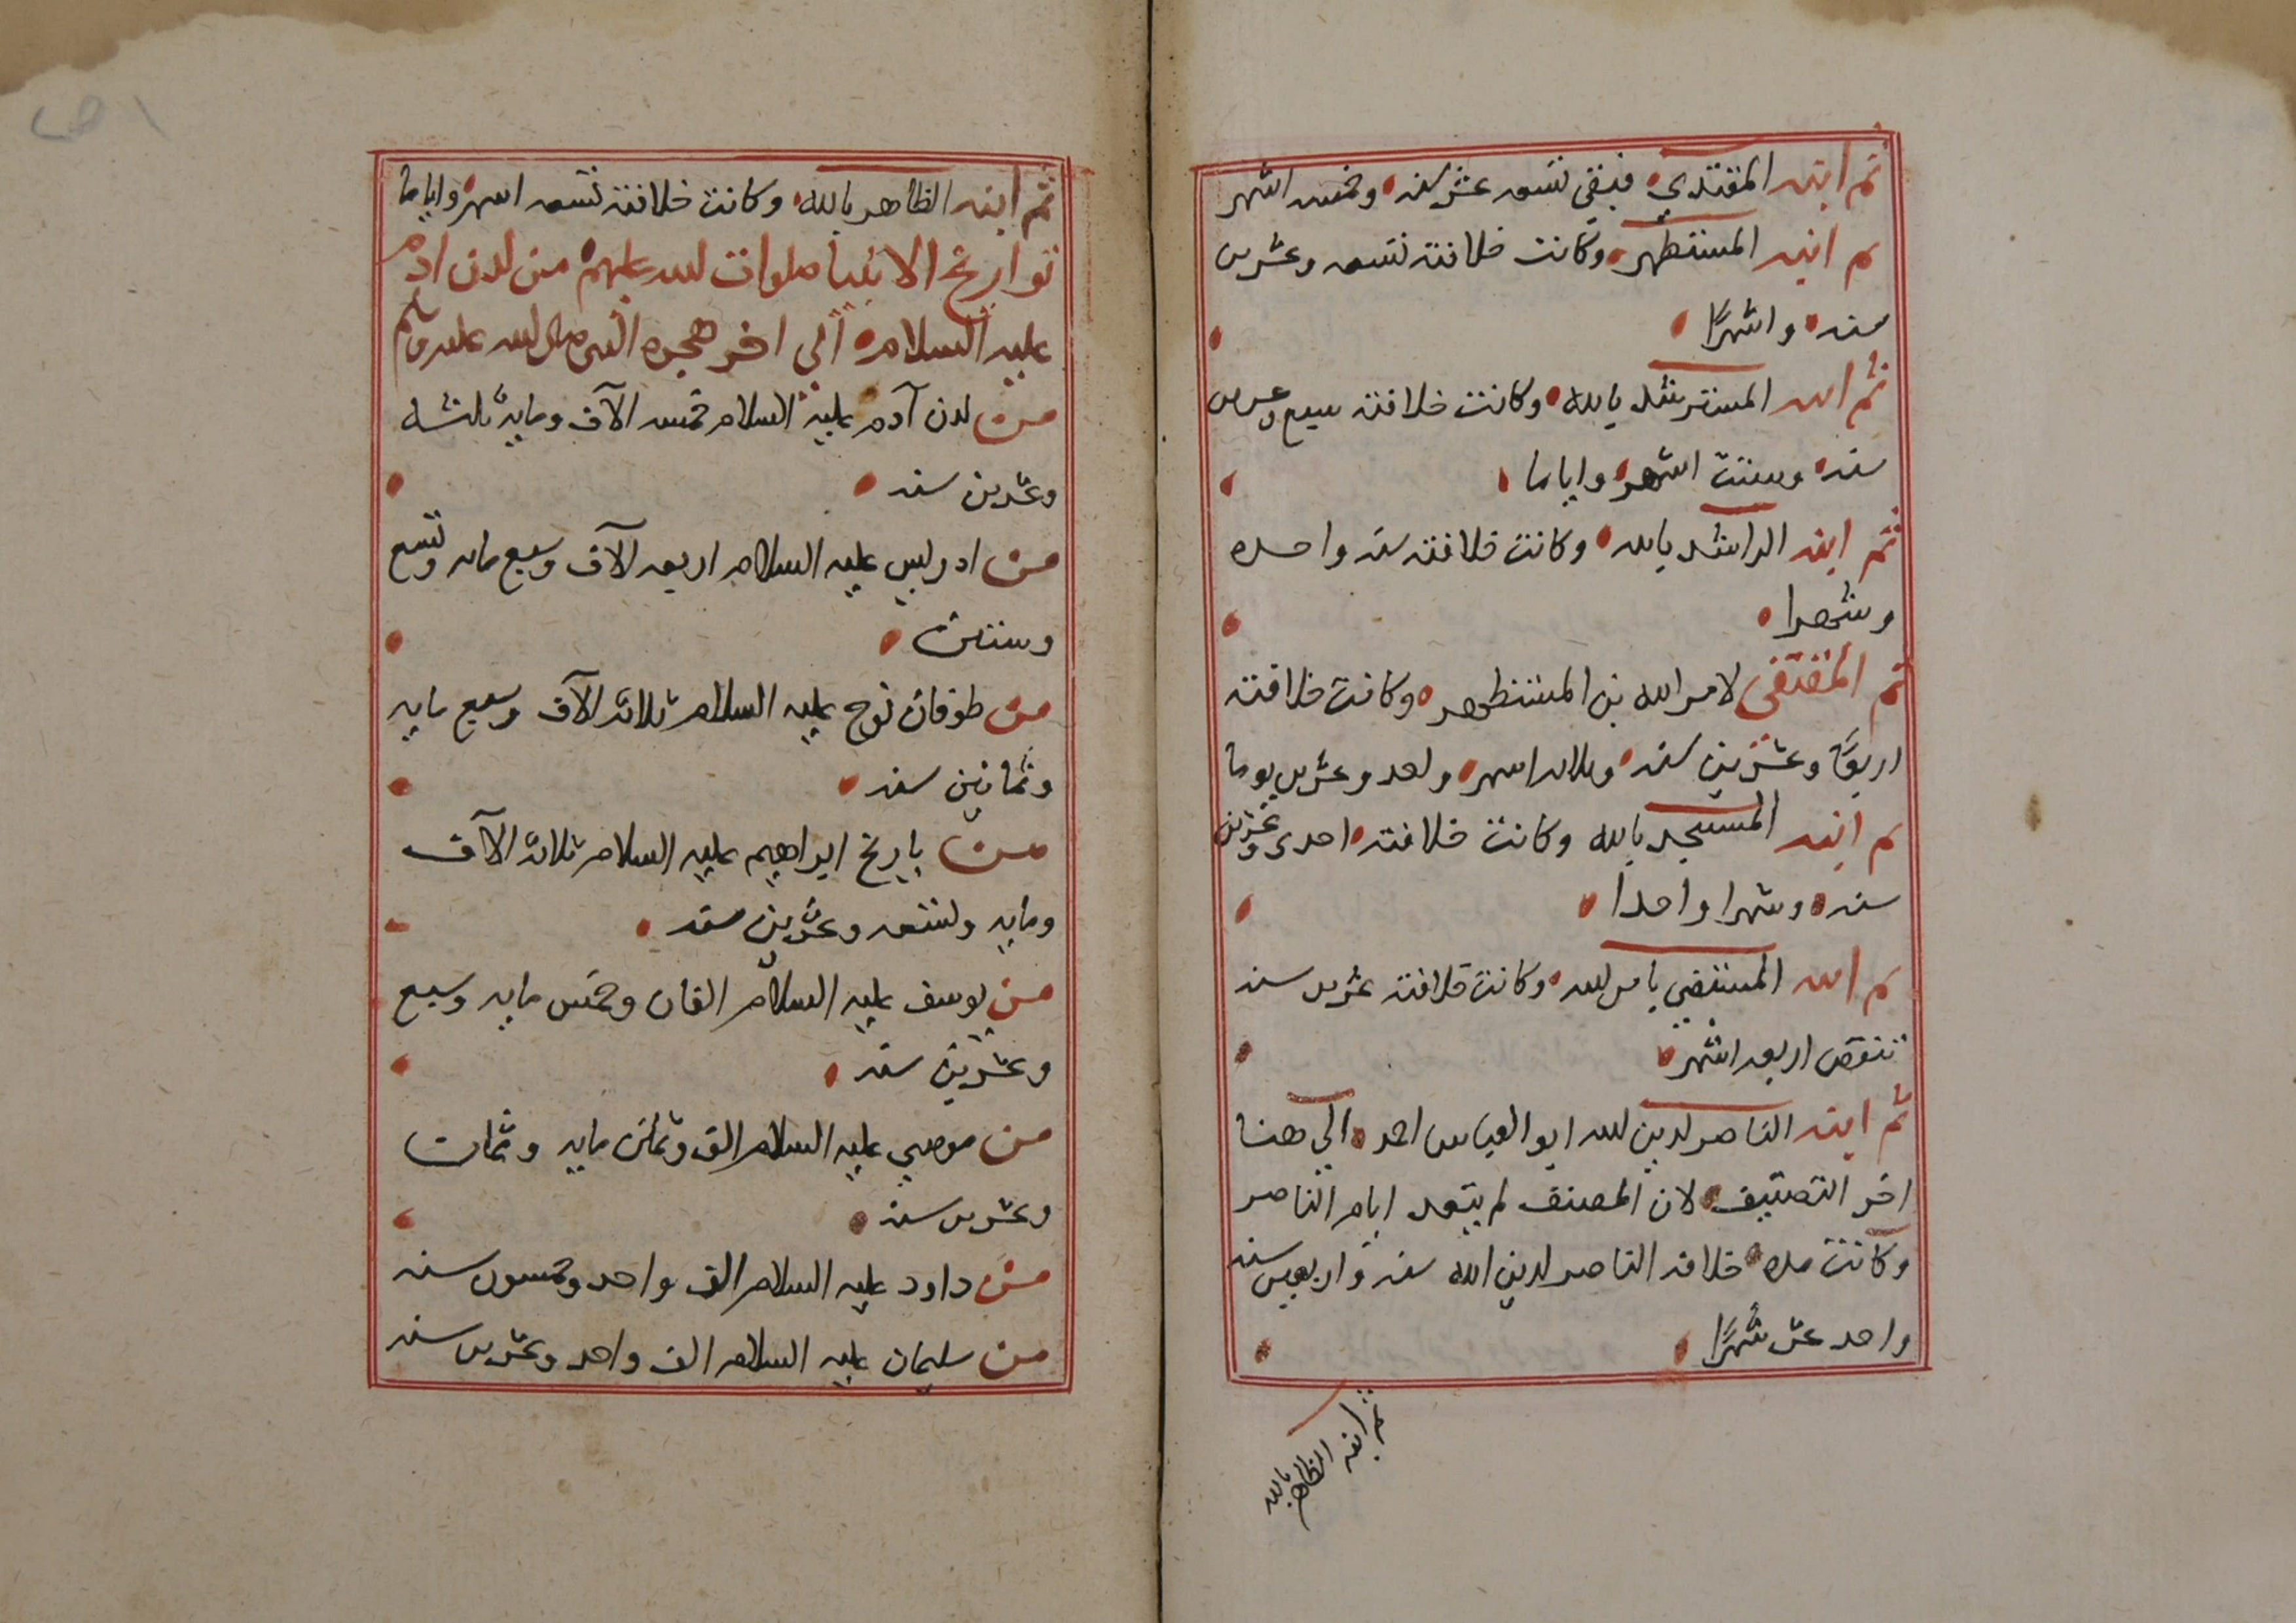 ثم ابنه المقتدي فبقي تسعه عشر سنه وخمسه اشهر
ثم ابنه المستظهر وكانت خلافته تسعه وعشرين
سنه واشهرًا
ثم ابنه المسترشد بالله وكانت خلافته سبع وعشرين
سنه وستت اشهر واياما
ثم ابنه الراشد بالله وكانت خلافته سنه واحده
وشهرا
ثم المقتفي لامر الله بن المستظهر وكانت خلافته
اربعًا وعشرين سنه وثلاثه اشهر واحد وعشرين يوما
ثم ابنه المستنجد بالله وكانت خلافته احدى وعشرين
سنه وشهرا واحدا
ثم ابنه المستضي بامر الله وكانت خلافته عشرين سنه
تنقص اربعه اشهر
ثم ابنه الناصر لدين لله ابو العباس احمد الي هنا
اخر التصنيف لان المصنف لم يتعد ايام الناصر
وكانت مده خلافه الناصر لدين الله سته واربعين سنه
واحد عشر شهرًا
ثم ابنه الظاهر بالله
ثم ابنه الظاهر بالله وكانت خلافته تسعه اشهر واياما
تواريخ الانبيا صلوات الله عليهم من لدن ادم
عليه السلام الي اخر هجره النبي صلى الله عليه وسلم
من لدن آدم عليه السلام خمسه الآف ومايه ثلثه
وعشرين سنه
من ادريس عليه السلام اربعه الآف وسبع مايه وتسع
وستين
من طوفان نوح عليه السلام ثلاثه الآف وسبع مايه
وثمانين سنه
من تاريخ ابراهيم عليه السلام ثلاثه الآف
ومايه وتسعه وعشرين سنه
من يوسف عليه السلام الفان وخمس مايه وسبع
وعشرين سنه
من موسي عليه السلام الف وثمان مايه وثمان
وعشرين سنه
من داود عليه السلام الف واحد وخمسون سنه
من سليمان عليه السلام الف واحد وعشرين سنه